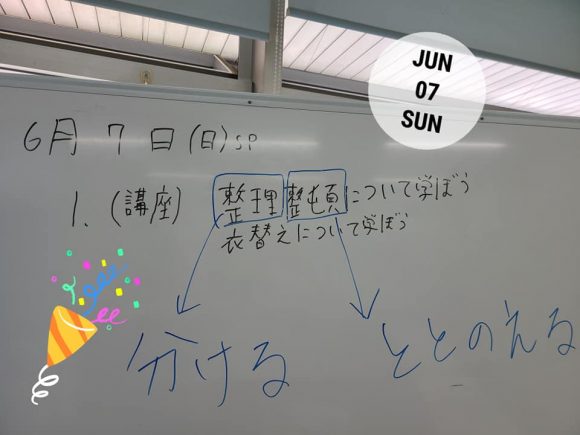 JUN
07
SUN
6月 7日(日)SP
1. (講座) 整理整頓について学ぼう
衣替えについて学ぼう
分ける
ととのえる